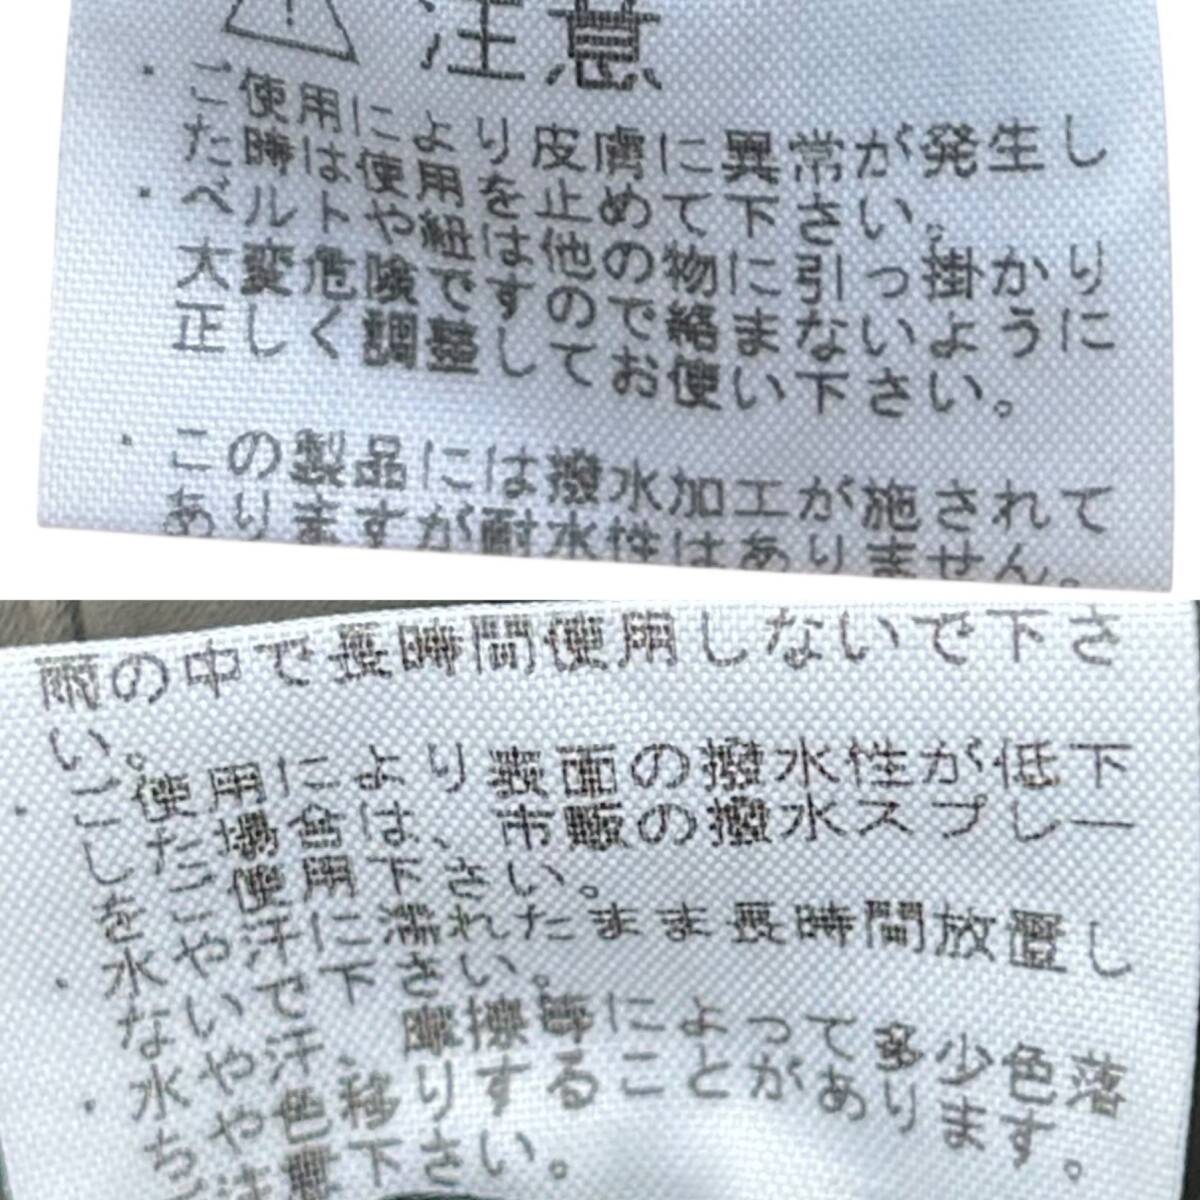 注意
・ご使用により皮膚に異常が発生し
た時は使用を止めて下さい。
・ベルトや紐は他の物に引っ掛かり
大変危険ですので絡まないように
正しく調整してお使い下さい。
・この製品には撥水加工が施されて
ありますが耐水性はありません。
雨の中で長時間使用しないで下さ
い。
・ご使用により表面の撥水性が低下
した場合は、市販の撥水スプレー
をご使用下さい。
・水や汗に濡れたまま長時間放置し
ないで下さい。
・水や汗、摩擦等によって多少色落
ちや色移りすることがあります。
ご注意下さい。